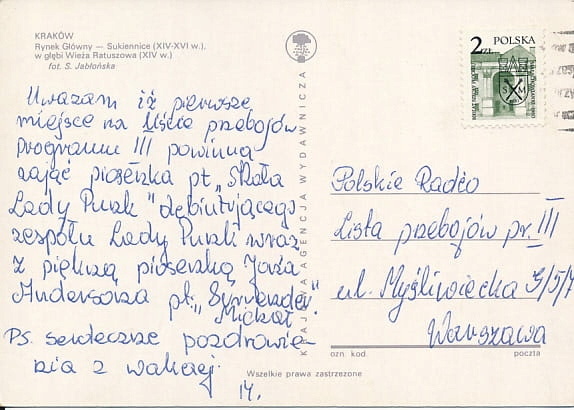 KRAKÓW
Rynek Główny — Sukiennice (XIV-XVI w.),
w głębi Wieża Ratuszowa (XIV w.)
fot. S. Jabłońska
Uważam iż pierwsze
miejsce na liście przebojów
Programu III powinna
zająć piosenka pt. „Skała
Lady Punk" debiutującego
zespołu Lady Punk wraz
z piękną piosenką
Andersona pt. „Surrender".
Michał
PS. serdeczne pozdrowie-
nia z wakacji
KRAJOWA AGENCJA WYDAWNICZA
2 ZŁ POLSKA
S M
Polskie Radio
Lista przebojów pr. III
ul. Myśliwiecka 3/5/7
Warszawa
ozn. kod poczta
Wszelkie prawa zastrzeżone